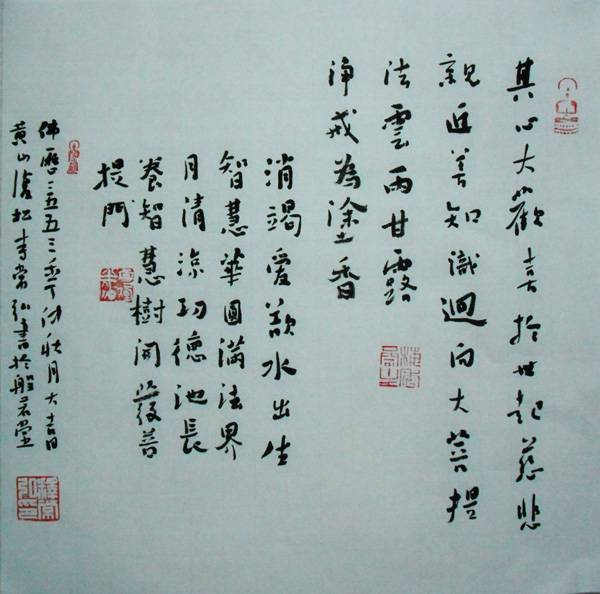 其心大歡喜於世起慈悲
親近善知識迴向大菩提
法雲雨甘露
淨戒為塗香
消竭愛欲水出生
智慧華圓滿法界
月清涼功德池長
養智慧樹開發善
提門
佛曆二五五三年仲秋月大吉日
黄山清松李常弘書於般若堂